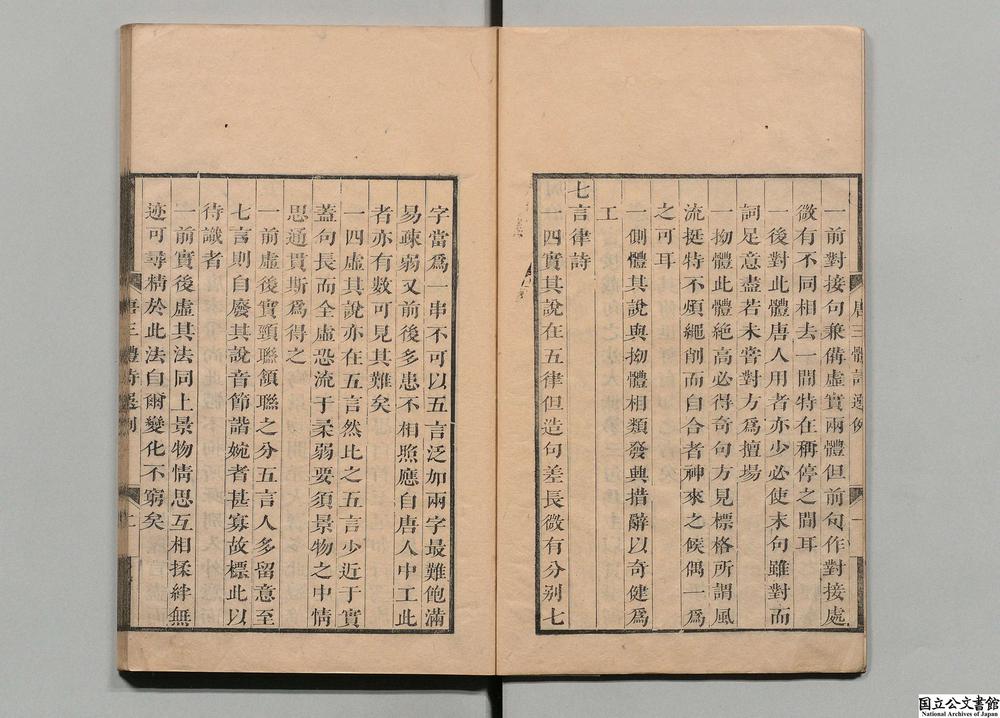 一前對接句兼備虛實兩體但前句作對接處
微有不同相去一間特在稱停之間耳
一後對此體唐人用者亦少必使末句雖對而
詞足意盡若未甞對方爲擅場
一拗體此體絕高必得奇句方見標格所謂風
流挺特不煩繩削而自合者神來之候偶一爲
之可耳
一側體其說與拗體相類發興措辭以奇健爲
工
七言律詩
一四實其說在五律但造句差長微有分别七
字當爲一串不可以五言泛加兩字最難飽滿
易疎弱又前後多患不相照應自唐人中工此
者亦有數可見其難矣
一四虛其說亦在五言然比之五言少近于實
蓋句長而全虛恐流于柔弱要須景物之中情
思通貫斯爲得之
一前虛後實頸聯頷聯之分五言人多留意至
七言則自廢其說音節諧婉者甚寡故標此以
待識者
一前實後虛其法同上景物情思互相揉絆無
迹可尋精於此法自爾變化不窮矣
唐三體詩選例
国立公文書館
National Archives of Japan